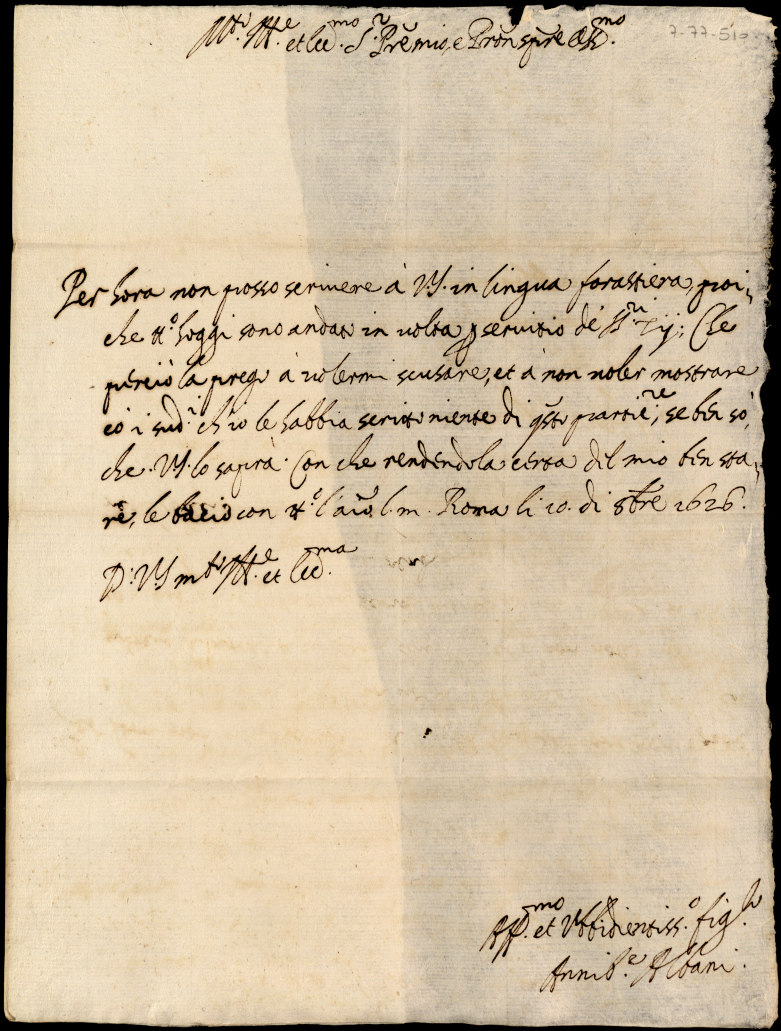 Mto. Ille. et Ecc.mo S.r P.re mio, e P.ron sp.re Oss.mo
7-77-510
Per hora non posso scrivere à V.S. in lingua forastiera, poi-
che tt.o hoggi sono andato in volta p servitio de' SS.ri Zij; Che
perciò la prego à volermi scusare, et à non voler mostrare
cō i sud.i ch'io le habbia scritto niente di q̄sto partic.re, se ben sò,
che V.S. lo saprà. Con che rendendola certa del mio ben sta-
re, le bacio con tt.o l'aīo l.m. Roma li 10. di 8bre 1626.
D. V.S. m.to Ill.e et Ecc.ma
Aff.mo et Ubbidientiss.o fig.lo
Annib.e Albani.